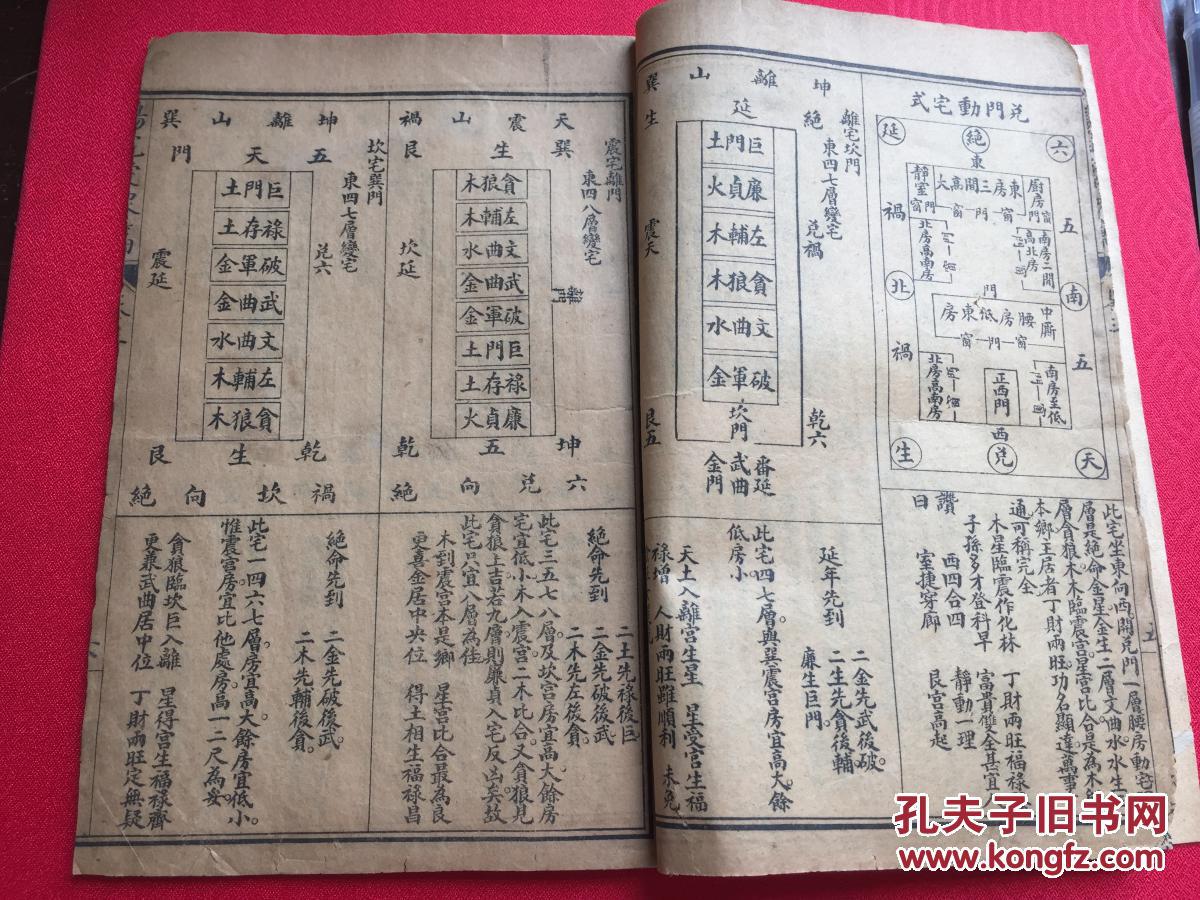 兌門動宅式
延
絕
六
東
廚房門
大高間三房東
靜室門
窗門窗
禍
五
北房高南房
南房二間
高北房
北
南
門
中廝
房東低房腰
窗門窗
禍
五
北房高南房
正西門
南房至低
生
西
兌
天
此宅坐東向西開兌門一層腰房動宅
層是絕命金星金生二層文曲水水生
層貪狼木木臨震宮星宮比合是為木
本鄉王居者丁財兩旺功名顯達萬事
通可稱完全
木星臨震作化林　丁財兩旺福祿
子孫多才登科早　富貴雙全甚宜人
西四合四　靜動一理
室捷穿廊　艮宮高起
讚曰
坤
離
山
巽
離宅坎門
東四七層變宅
絕
延
生
兌禍
震天
巨門土
廉貞火
左輔木
貪狼木
文曲水
破軍金
坎門
乾六
艮五
番延
武曲
金門
延年先到　二金先武後破
二生先貪後輔
廉生巨門
此宅四七層與巽震宮房宜高大餘
低房小
天土入離宮生星　星受宮生福
祿增　人財兩旺雖順利　未免
天
震
山
禍
震宅離門
東四八層變宅
巽
生
艮
坎延
離門
貪狼木
左輔木
文曲水
武曲金
破軍金
巨門土
祿存土
廉貞火
坤
五
乾
六
兌
向
絕
絕命先到　二土先祿後巨
二金先破後武
二木先左後貪
此宅三五七八層及坎宮房宜高大餘房
宅宜低小木入震宮二木比合又貪狼見
貪狼上吉若九層則廉貞入宅反凶矣故
此宅只宜八層為佳
木到震宮本是鄉　星宮比合最為良
更喜金居中央位　得土相生福祿昌
坤
離
山
巽
坎宅巽門
東四七層變宅
五
天
門
兌六
震延
巨門土
祿存土
破軍金
武曲金
文曲水
左輔木
貪狼木
乾
生
艮
禍
坎
向
絕
絕命先到　二金先破後武
二木先輔後貪
此宅一四六七層房宜高大餘房宜低小
惟震宮房宜比他處房高一二尺為妥
貪狼臨坎巨入離　星得宮生福祿齊
更兼武曲居中位　丁財兩旺定無疑
孔夫子旧书网
www.kongfz.com